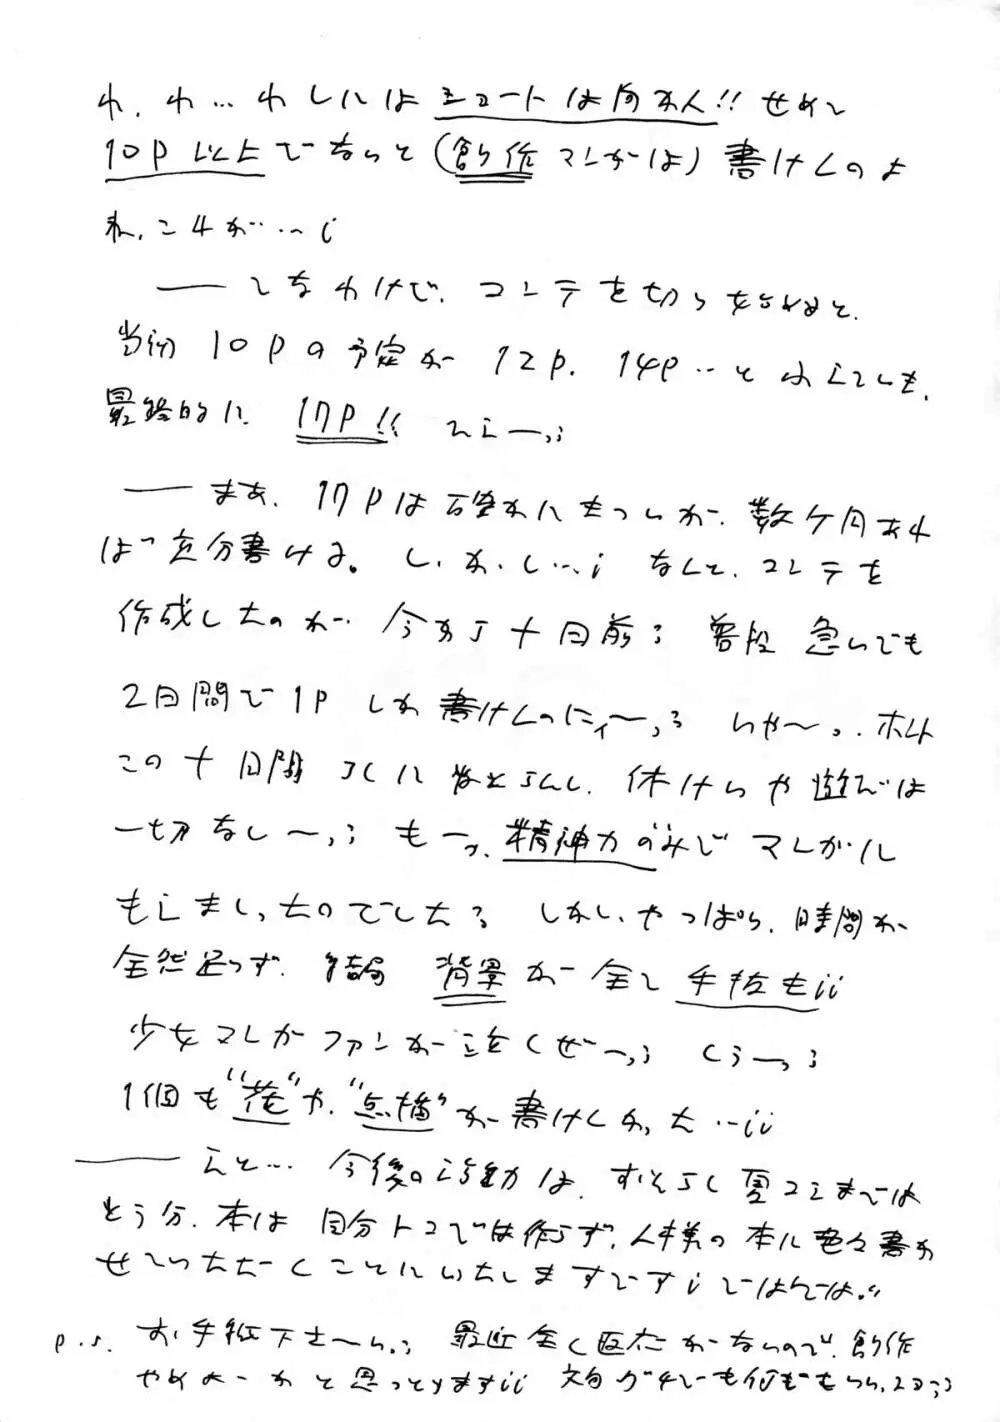 わ、わ…わしにはショートは向かん!! せめて
10P以上でないと(創作マンガは)書けんのよ
ね、これが…;
——てなわけで、コンテを切り始めると、
当初10Pの予定が12P、14P…とふえていき、
最終的に、17P!!
——まあ、17Pは確かにきついが、数ヶ月あれ
ば十分書ける。し、か、し…; なんと、コンテを
作成したのが、今から十日前; 普段急いでも
2日間で1Pしか書けんのにィ〜っ; いや〜っ、ホント
この十日間ろくに寝とらんし、休けいや遊びは
一切なし〜っ; もーっ、精神力のみでマンガに
もえまくったのでした; しかし、やっぱり、時間が
全然足らず、結局 背景が全て手抜き;;
少女マンガファンが泣くぜーっ; くうーっ;
1個も“花”や“点描”が書けんかった…;;
——えと… 今後の活動は、おそらく夏コミまでは
とう分、本は自分トコでは作らず、人様の本に色々書か
せていただくことにいたしますです; ではでは。
P.S. お手紙下さ〜い; 最近全く反応がないので、創作
やめよーかと思っとります;; 文句グチでも何でもいい、